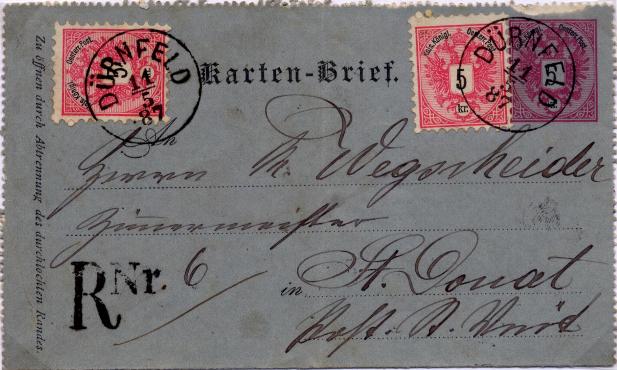 Karten-Brief.
DÜRNFELD
11
5
87
5
kr.
Kais. Königl. Oesterr. Post.
DÜRNFELD
11
5
87
5
An
Herrn M. Wegscheider
Zimmermeister
in St. Donat
Post St. Veit
R Nr. 6
Zu öffnen durch Abtrennung des durchlochten Randes.